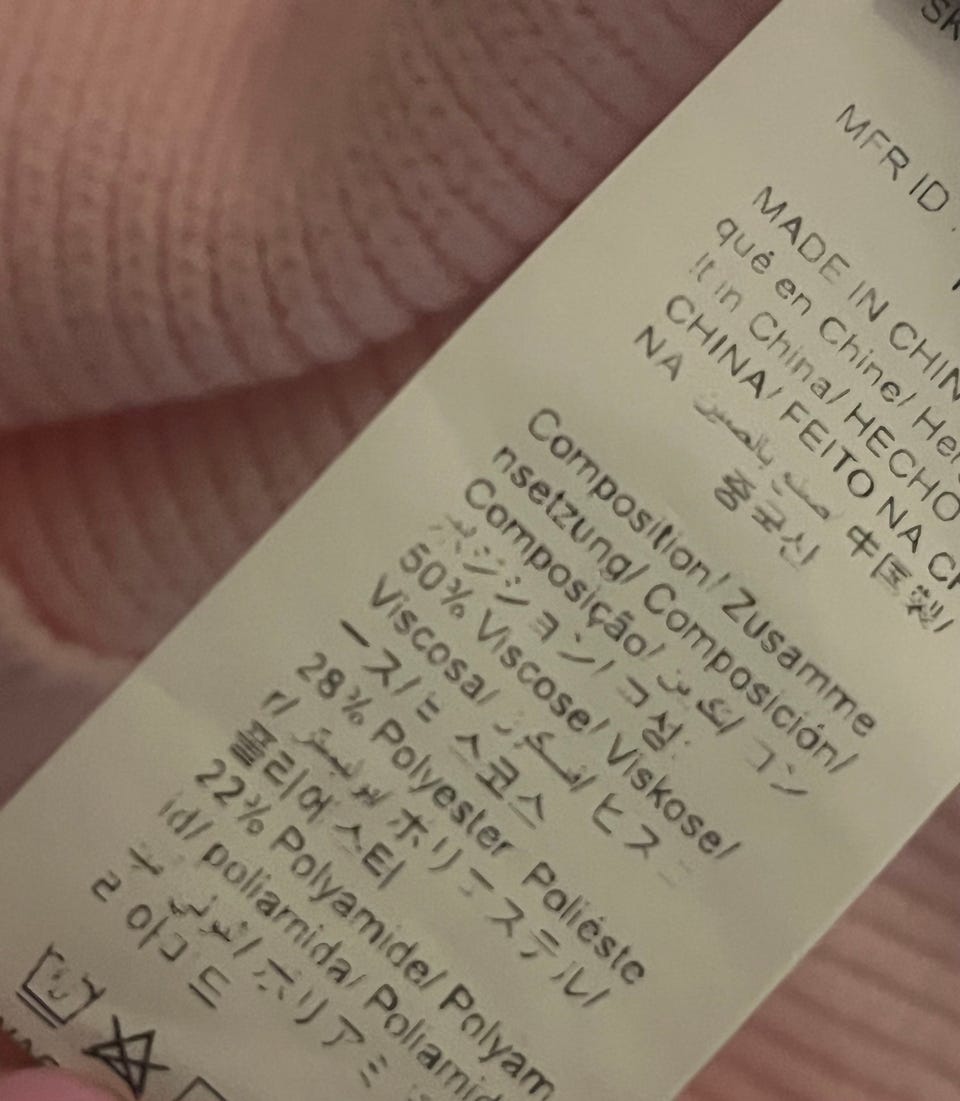 MFR ID
MADE IN CHIN
qué en Chine/ Her
lt in China/ HECHO
CHINA/ FEITO NA CH
NA صنع بالصين/ 中国製/
중국산
Composition/ Zusamme
nsetzung/ Composición/
Composição/ コン
ポジション/
50% Viscose/ Viskose/
Viscosa/ ヒスコ
ース/ 스코스
28% Polyester Poliéste
r/ ポリエステル/
폴리에스터
22% Polyamide/ Polyam
id/ poliamida/ Poliamid
ポリアミ